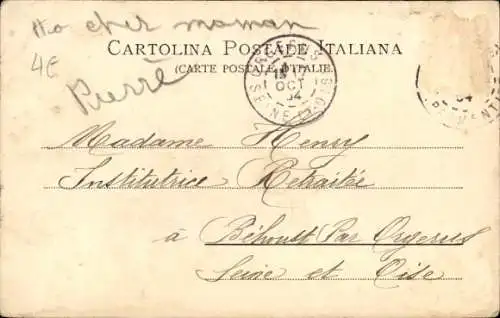 cher maman
4€
Pierre
CARTOLINA POSTALE ITALIANA
(CARTE POSTALE D'ITALIE)
ORGERUS
OCT
SEINE
Madame Henry
Institutrice Retraitée
à Béhoust Par Orgerus
Seine et Oise